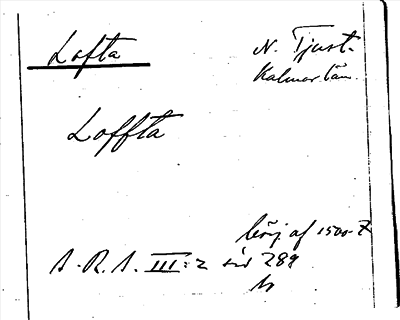 Lofta
N. Tjust.
Kalmar län.
Loffta
börj af 1500-t
S.R.A. III:2 sid 289